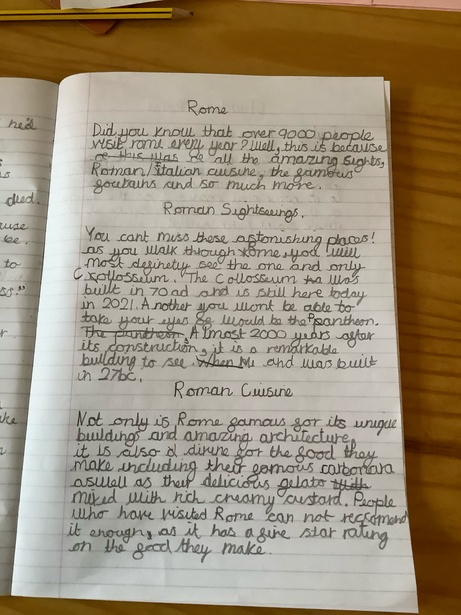 he'd
s
died.
use
be.
to
ss."
r
ke
n
Rome
Did you know that over 9000 people
visit rome every year? Well, this is because
of this was be all the amazing sights,
Roman/italian cuisine, the famous
fountains and so much more.
Roman Sightseeings.
You cant miss these astonishing places!
as you walk through Rome, you will
most definetly see the one and only
Collosseum. The Collosseum was
built in 70ad and is still here today
in 2021. Another you wont be able to
take your eyes of would be the pantheon.
The pantheon. Almost 2000 years after
its construction, it is a remarkable
building to see. When and was built
in 27bc.
Roman Cuisine
Not only is Rome famous for its unique
buildings and amazing architecture,
it is also divine for the food they
make including their famous carbonara
aswell as their delicious gelato with
mixed with rich creamy custard. People
who have visited Rome can not reccomend
it enough, as it has a five star rating
on the food they make.